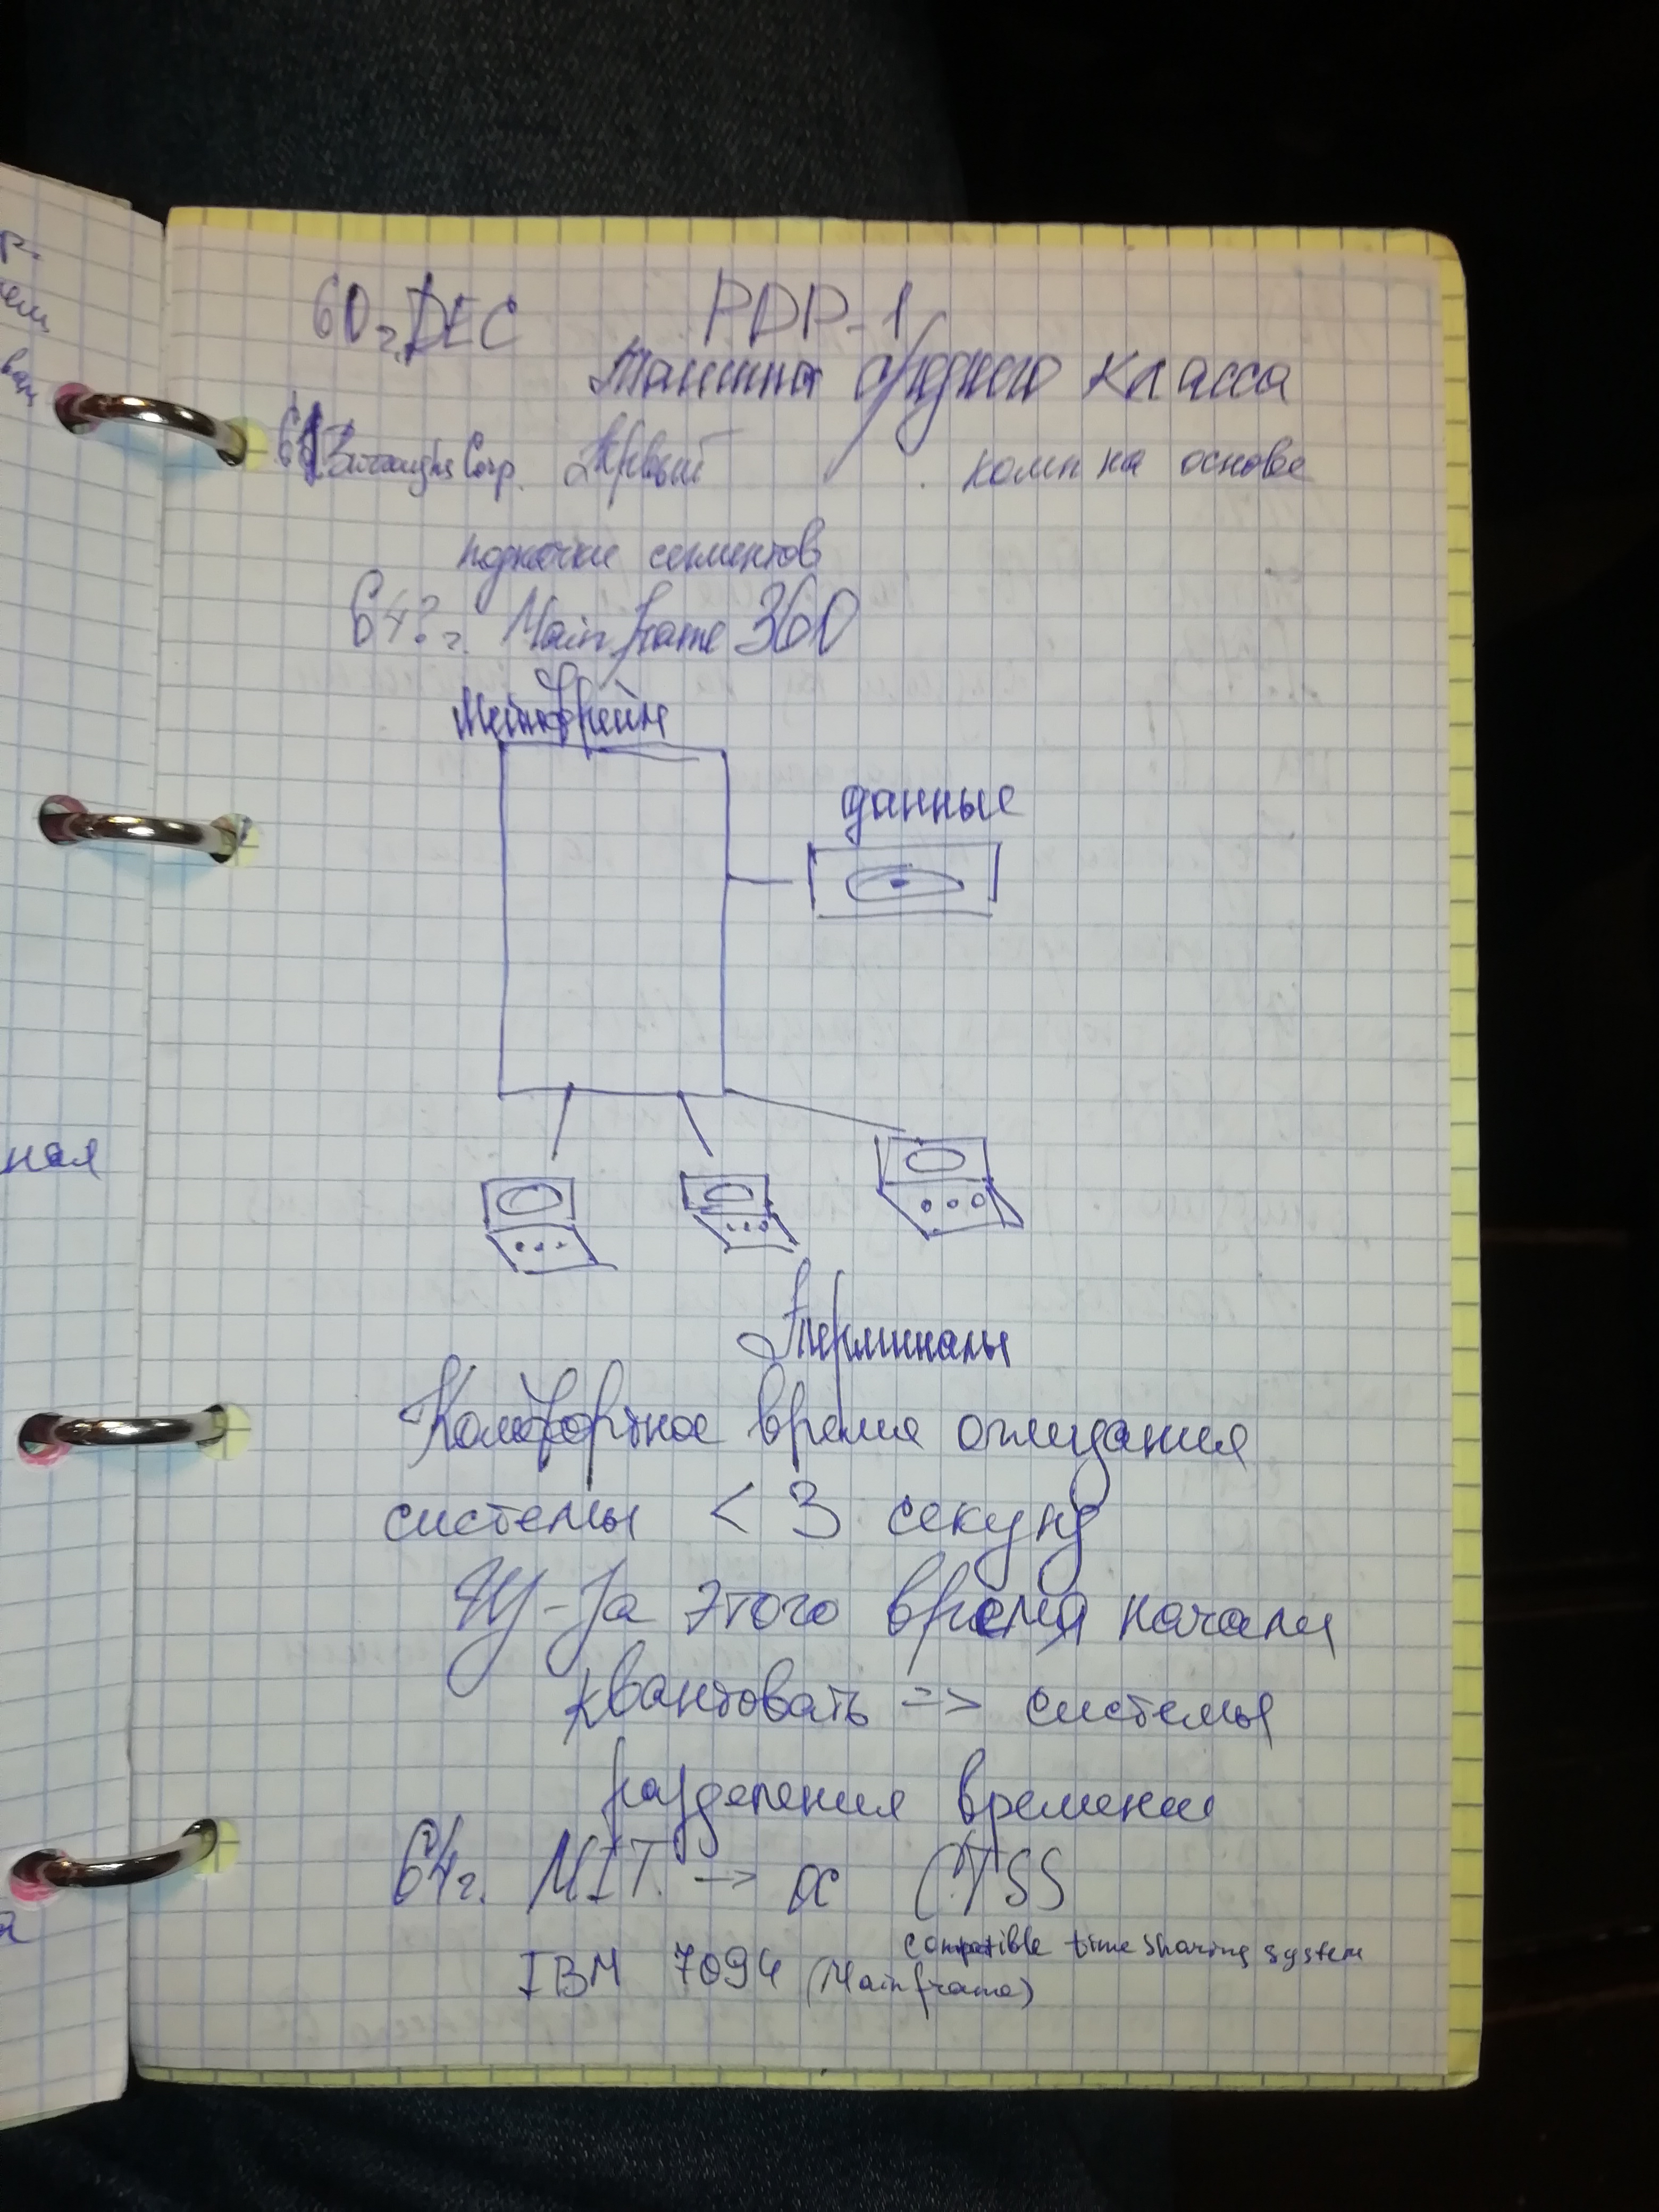 60г. DEC PDP-1
Машина среднего класса
61 Burroughs Corp. Первый комп на основе
подкачки сегментов
64?г. Mainframe 360
Мейнфрейм
данные
Терминалы
Комфортное время ожидания
системы < 3 секунд
Из-за этого время начали
квантовать => системы
разделения времени
64г. MIT. -> ОС CTSS
compatible time sharing system
IBM 7094 (Mainframe)
ная